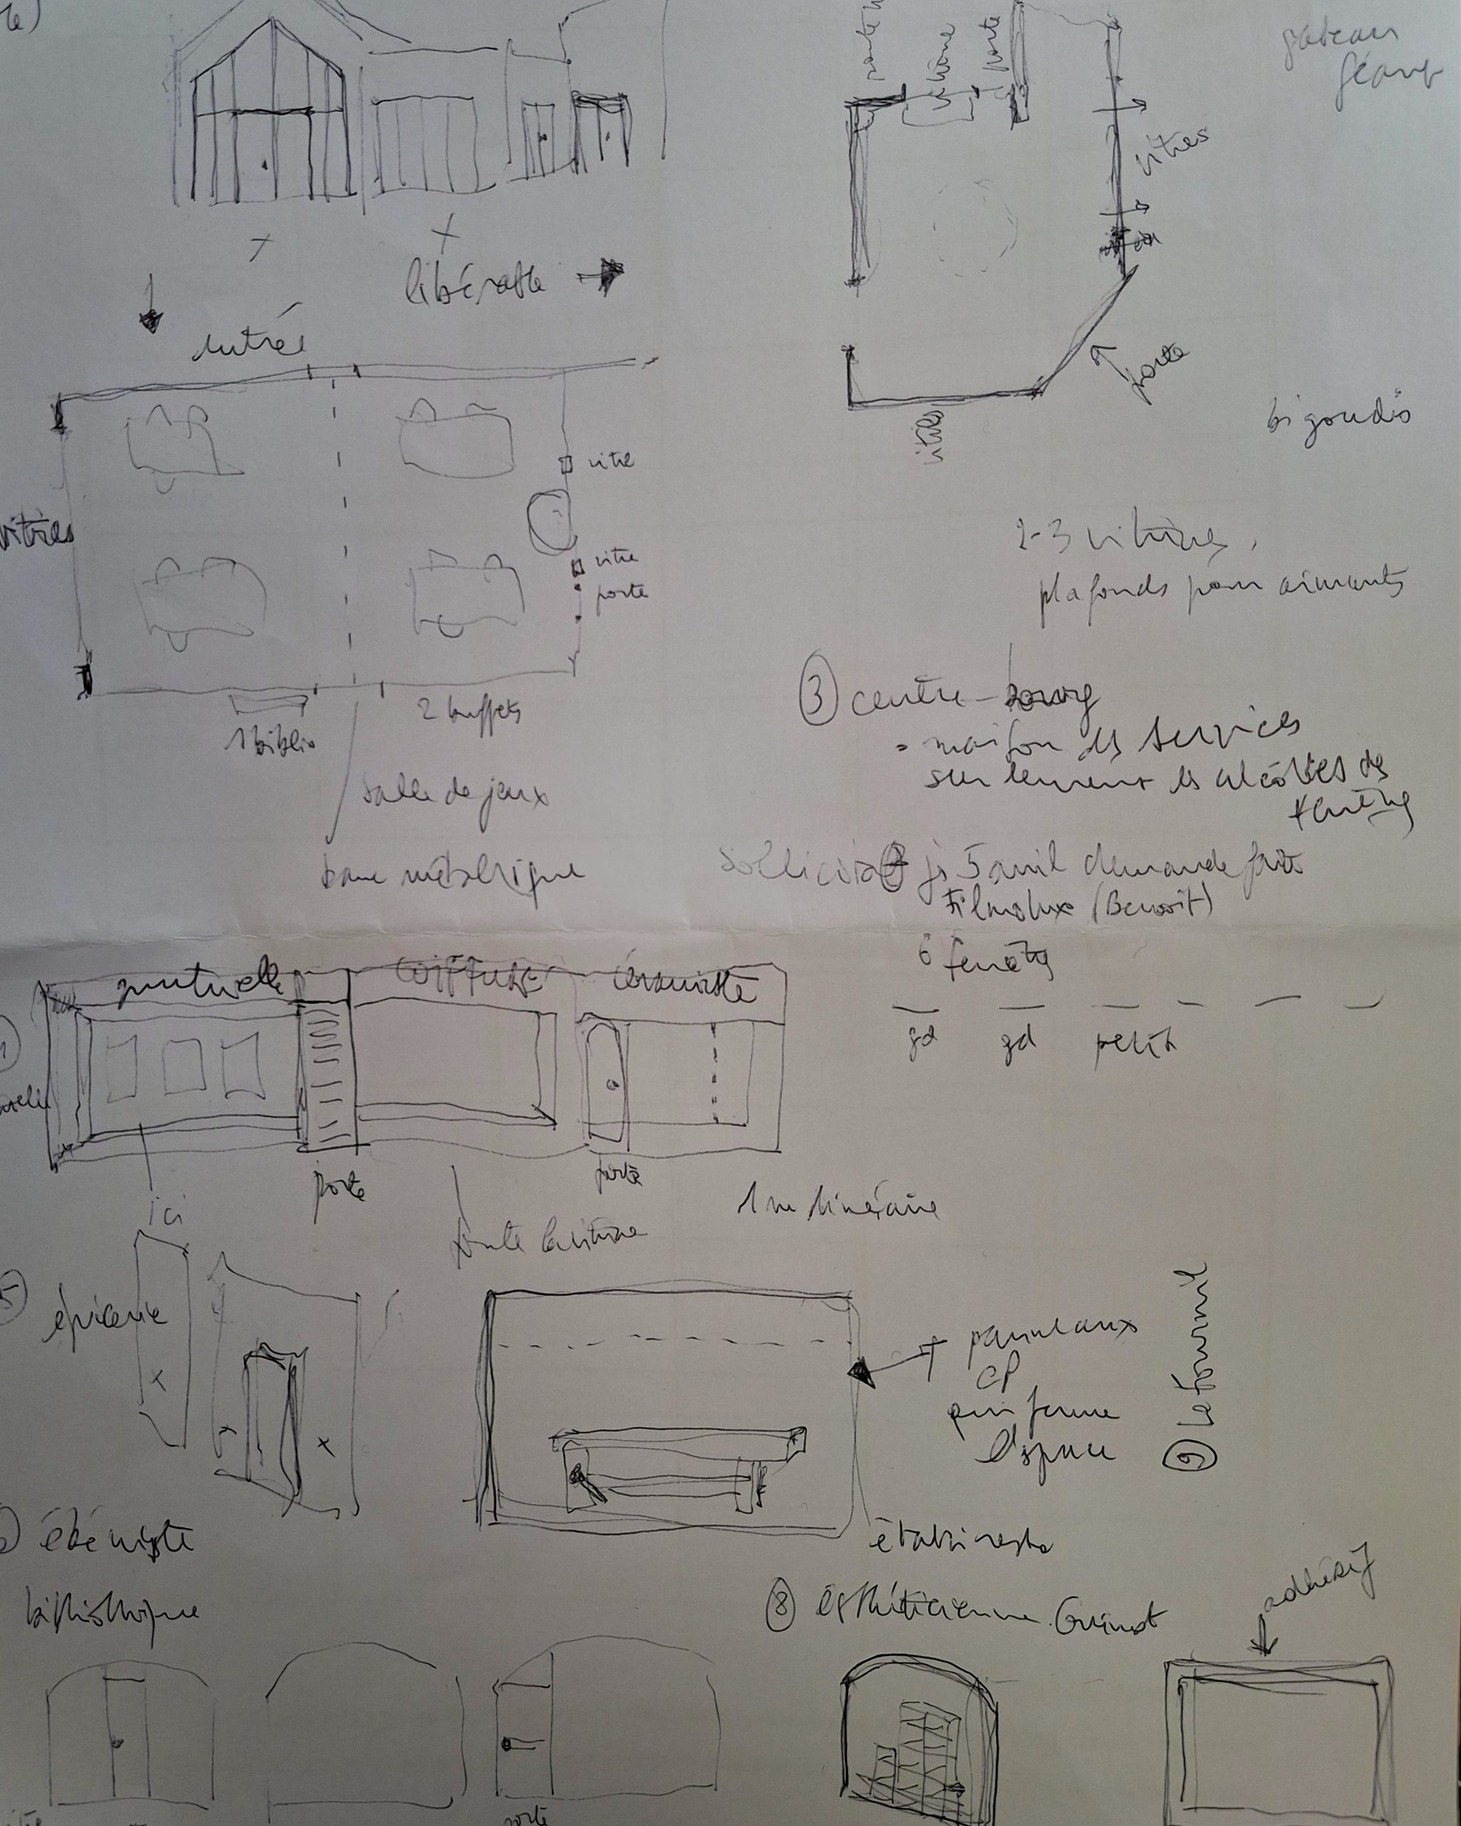 gateau
géant
porte
vitrine
porte
vitres
porte
vitres
libérable
entrée
bigoudis
vitre
vitrées
vitre
porte
2-3 vitrines,
plafonds pour aimants
1 biblio
2 buffets
③ centre-bourg
= maison des services
seulement les alcôves des
fenêtres
salle de jeux
barre métallique
5 avril demande faite
Filmolux (Benoit)
6 fenêtres
gd gd petit
mutuelle COIFFUSE céramiste
ici
porte
porte
toute la vitrine
1 m linéaire
5 épicerie
+ panneaux
CP
qui ferme
l'espace
⑨ le fournil
ébéniste
établi reste
bibliothèque
⑧ esthéticienne Guinot
adhésif
porte